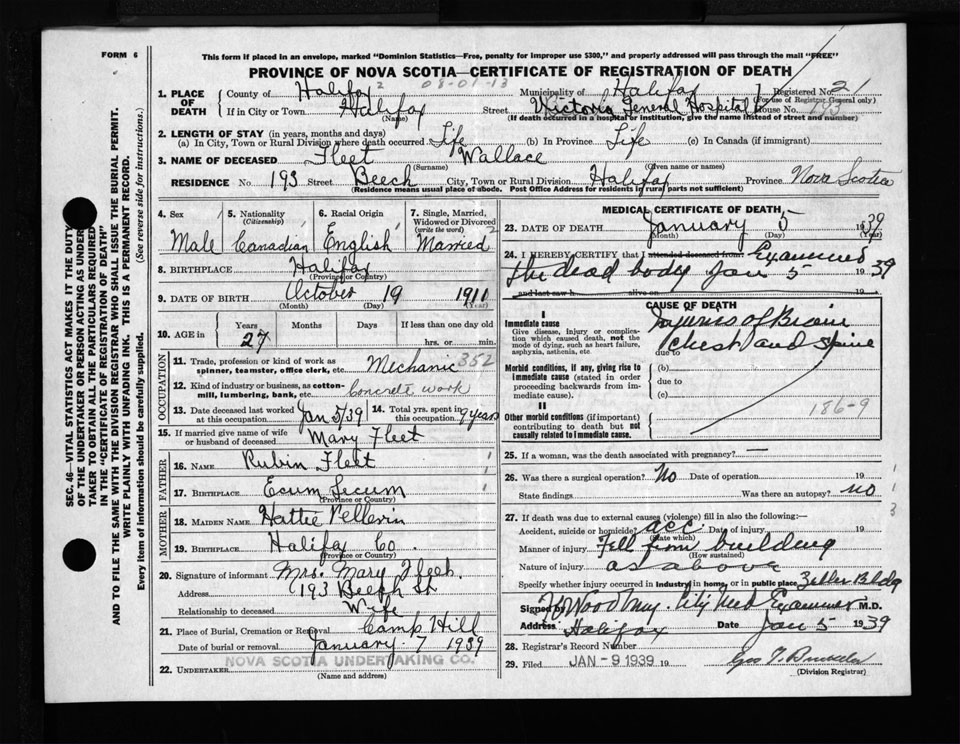 FORM 6
This form if placed in an envelope, marked "Dominion Statistics—Free, penalty for improper use $300," and properly addressed will pass through the mail "FREE"
PROVINCE OF NOVA SCOTIA—CERTIFICATE OF REGISTRATION OF DEATH
08-01-13
1. PLACE OF DEATH County of Halifax 2 Municipality of Halifax Registered No. 21
(For use of Registrar General only)
If in City or Town Halifax (Name) Street Victoria General Hospital House No. 193
(If death occurred in a hospital or institution, give the name instead of street and number)
2. LENGTH OF STAY (in years, months and days)
(a) In City, Town or Rural Division where death occurred Life (b) In Province Life (c) In Canada (if immigrant)
3. NAME OF DECEASED Fleet Wallace
(Surname) (Given name or names)
RESIDENCE No 193 Street Beech City, Town or Rural Division Halifax Province Nova Scotia
(Residence means usual place of abode. Post Office Address for residents in rural parts not sufficient)
4. Sex 5. Nationality (Citizenship) 6. Racial Origin 7. Single, Married, Widowed or Divorced (write the word) 2
Male Canadian English Married
8. BIRTHPLACE Halifax
(Province or Country)
9. DATE OF BIRTH October 19 1911
(Month) (Day) (Year)
10. AGE in Years Months Days If less than one day old
27 hrs. or min.
OCCUPATION
11. Trade, profession or kind of work as spinner, teamster, office clerk, etc. Mechanic 352
12. Kind of industry or business, as cotton-mill, lumbering, bank, etc. Concrete work
13. Date deceased last worked at this occupation Jan 5/39 14. Total yrs. spent in this occupation 9 years
15. If married give name of wife or husband of deceased Mary Fleet
FATHER
16. NAME Rubin Fleet
17. BIRTHPLACE Ecum Secum
(Province or Country)
MOTHER
18. MAIDEN NAME Hattie Pellerin
19. BIRTHPLACE Halifax Co.
(Province or Country)
20. Signature of informant Mrs. Mary Fleet
Address 193 Beech St
Relationship to deceased Wife
21. Place of Burial, Cremation or Removal Camp Hill
Date of burial or removal January 7 1939
22. UNDERTAKER NOVA SCOTIA UNDERTAKING CO.
(Name and address)
MEDICAL CERTIFICATE OF DEATH
23. DATE OF DEATH January 5 1939
(Month) (Day) (Year)
24. I HEREBY CERTIFY that I attended deceased from Examined
the dead body Jan 5 1939
and last saw h alive on 19
CAUSE OF DEATH
I
Immediate cause
Give disease, injury or complication which caused death, not the mode of dying, such as heart failure, asphyxia, asthenia, etc
Injuries of Brain
Chest and Spine
due to
Morbid conditions, if any, giving rise to immediate cause (stated in order proceeding backwards from immediate cause).
(b)
due to
(c)
II
Other morbid conditions (if important) contributing to death but not causally related to immediate cause.
186-9
25. If a woman, was the death associated with pregnancy? —
26. Was there a surgical operation? No Date of operation 19
State findings Was there an autopsy? no
27. If death was due to external causes (violence) fill in also the following:—
Accident, suicide or homicide? acc. Date of injury 19
(State which)
Manner of injury Fell from building
(How sustained)
Nature of injury as above
Specify whether injury occurred in industry, in home, or in public place Zeller Bldg
Signed by Med Examiner M.D.
Address Halifax Date Jan 5 1939
28. Registrar's Record Number
29. Filed JAN - 9 1939 19
(Division Registrar)
SEC. 46—VITAL STATISTICS ACT MAKES IT THE DUTY OF THE UNDERTAKER OR PERSON ACTING AS UNDERTAKER TO OBTAIN ALL THE PARTICULARS REQUIRED IN THE "CERTIFICATE OF REGISTRATION OF DEATH"
AND TO FILE THE SAME WITH THE DIVISION REGISTRAR WHO SHALL ISSUE THE BURIAL PERMIT.
WRITE PLAINLY WITH UNFADING INK. THIS IS A PERMANENT RECORD.
Every item of information should be carefully supplied. (See reverse side for instructions.)